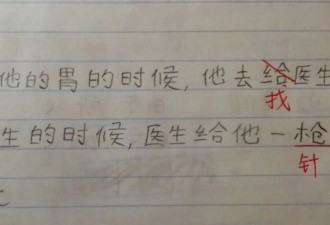 他的胃的时候,他去给医生
找
生的时候,医生给他一枪
针